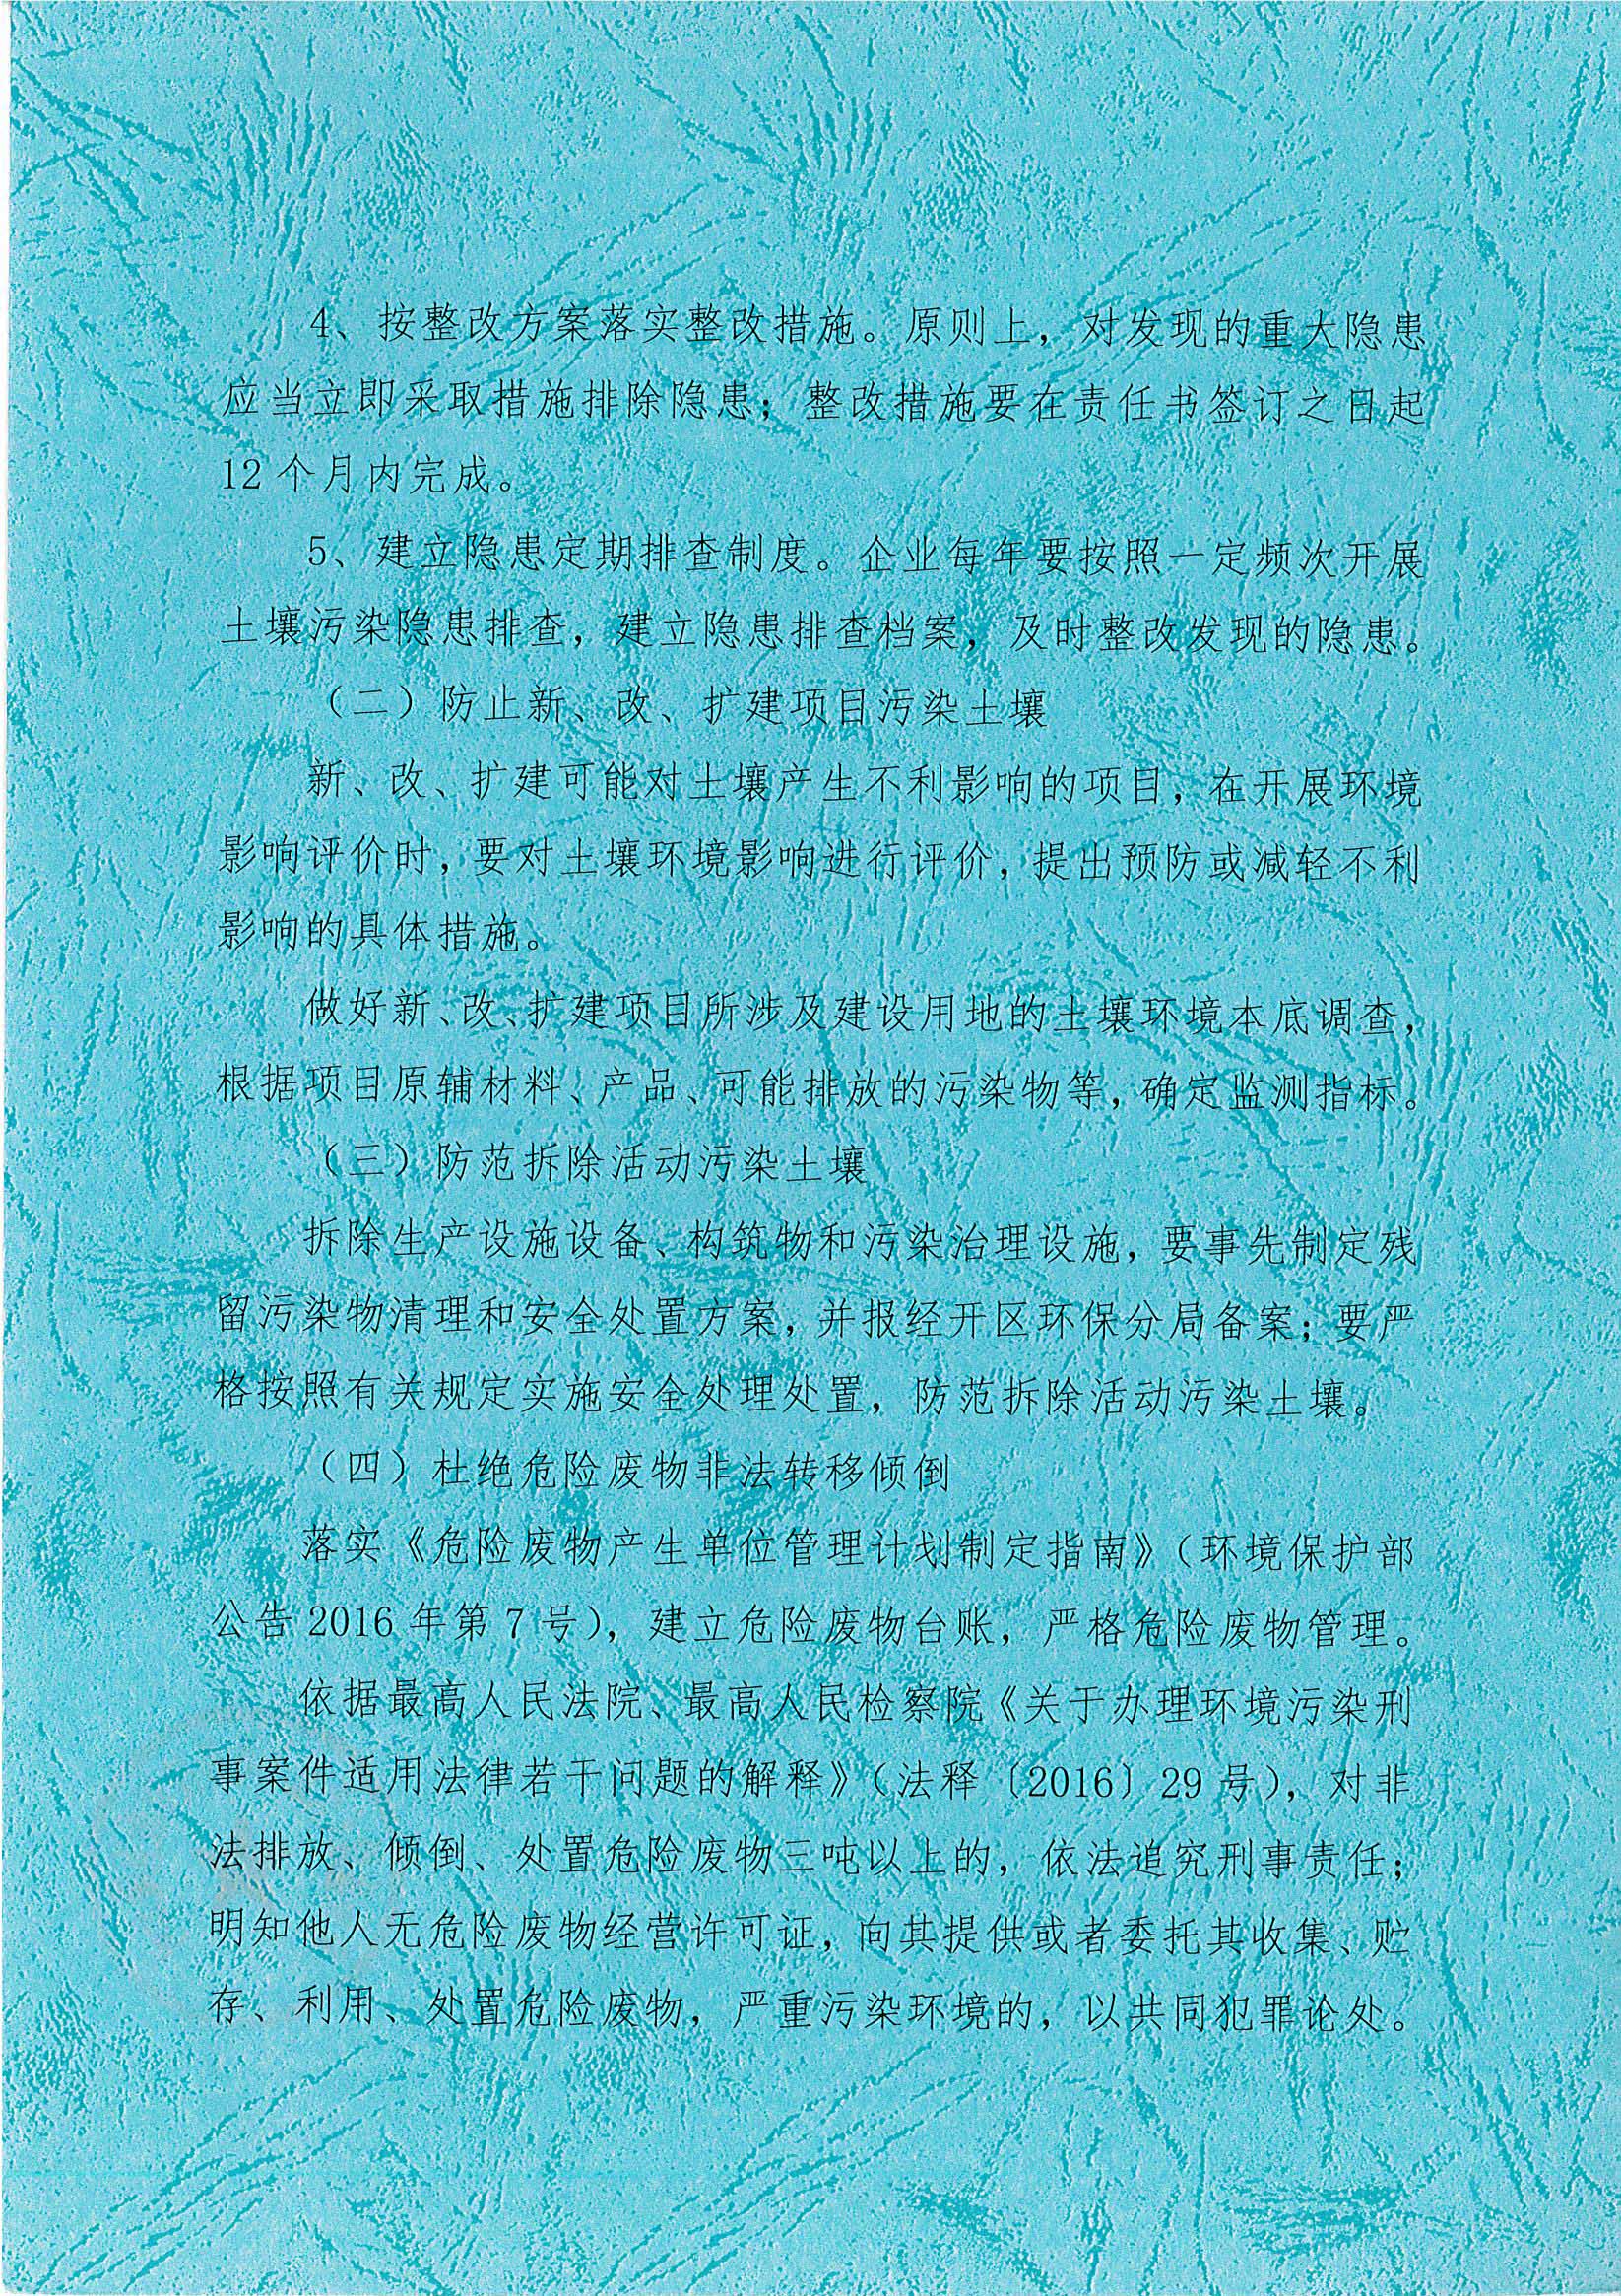 4、按整改方案落实整改措施。原则上，对发现的重大隐患
应当立即采取措施排除隐患；整改措施要在责任书签订之日起
12个月内完成。
5、建立隐患定期排查制度。企业每年要按照一定频次开展
土壤污染隐患排查，建立隐患排查档案，及时整改发现的隐患。
（二）防止新、改、扩建项目污染土壤
新、改、扩建可能对土壤产生不利影响的项目，在开展环境
影响评价时，要对土壤环境影响进行评价，提出预防或减轻不利
影响的具体措施。
做好新、改、扩建项目所涉及建设用地的土壤环境本底调查，
根据项目原辅材料、产品、可能排放的污染物等，确定监测指标。
（三）防范拆除活动污染土壤
拆除生产设施设备、构筑物和污染治理设施，要事先制定残
留污染物清理和安全处置方案，并报经开区环保分局备案；要严
格按照有关规定实施安全处理处置，防范拆除活动污染土壤。
（四）杜绝危险废物非法转移倾倒
落实《危险废物产生单位管理计划制定指南》（环境保护部
公告2016年第7号），建立危险废物台账，严格危险废物管理。
依据最高人民法院、最高人民检察院《关于办理环境污染刑
事案件适用法律若干问题的解释》（法释〔2016〕29号），对非
法排放、倾倒、处置危险废物三吨以上的，依法追究刑事责任；
明知他人无危险废物经营许可证，向其提供或者委托其收集、贮
存、利用、处置危险废物，严重污染环境的，以共同犯罪论处。